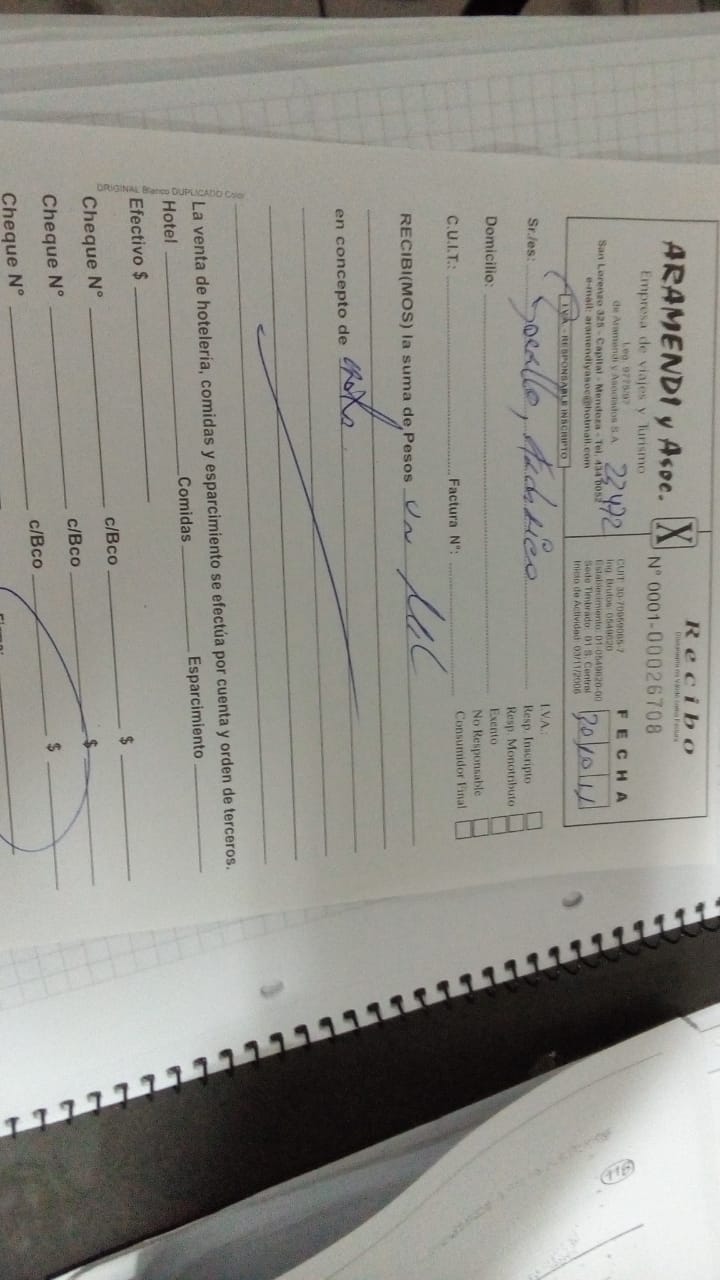 ARAMENDI y Asoc.
Empresa de viajes y Turismo
Leg. 9775/97
de Aramendi y Asociados S.A.
22472
San Lorenzo 325 - Capital - Mendoza - Tel. 434 0053
e-mail: aramendiyasoc@hotmail.com
I.V.A. - RESPONSABLE INSCRIPTO
X
Recibo
Documento no válido como Factura
N° 0001-00026708
CUIT: 30-70959065-7
Ing. Brutos: 0549020
Establecimiento: 01-0549020-00
Sede Timbrado: 01 S. Central
Inicio de Actividad: 03/11/2006
FECHA
Sr./es:
Domicilio:
C.U.I.T.: Factura N°:
I.V.A.:
Resp. Inscripto
Resp. Monotributo
Exento
No Responsable
Consumidor Final
RECIBI(MOS) la suma de Pesos un mil
en concepto de
La venta de hotelería, comidas y esparcimiento se efectúa por cuenta y orden de terceros.
Hotel Comidas Esparcimiento
Efectivo $
Cheque N° c/Bco $
Cheque N° c/Bco $
Cheque N° c/Bco $
ORIGINAL Blanco DUPLICADO Color
116